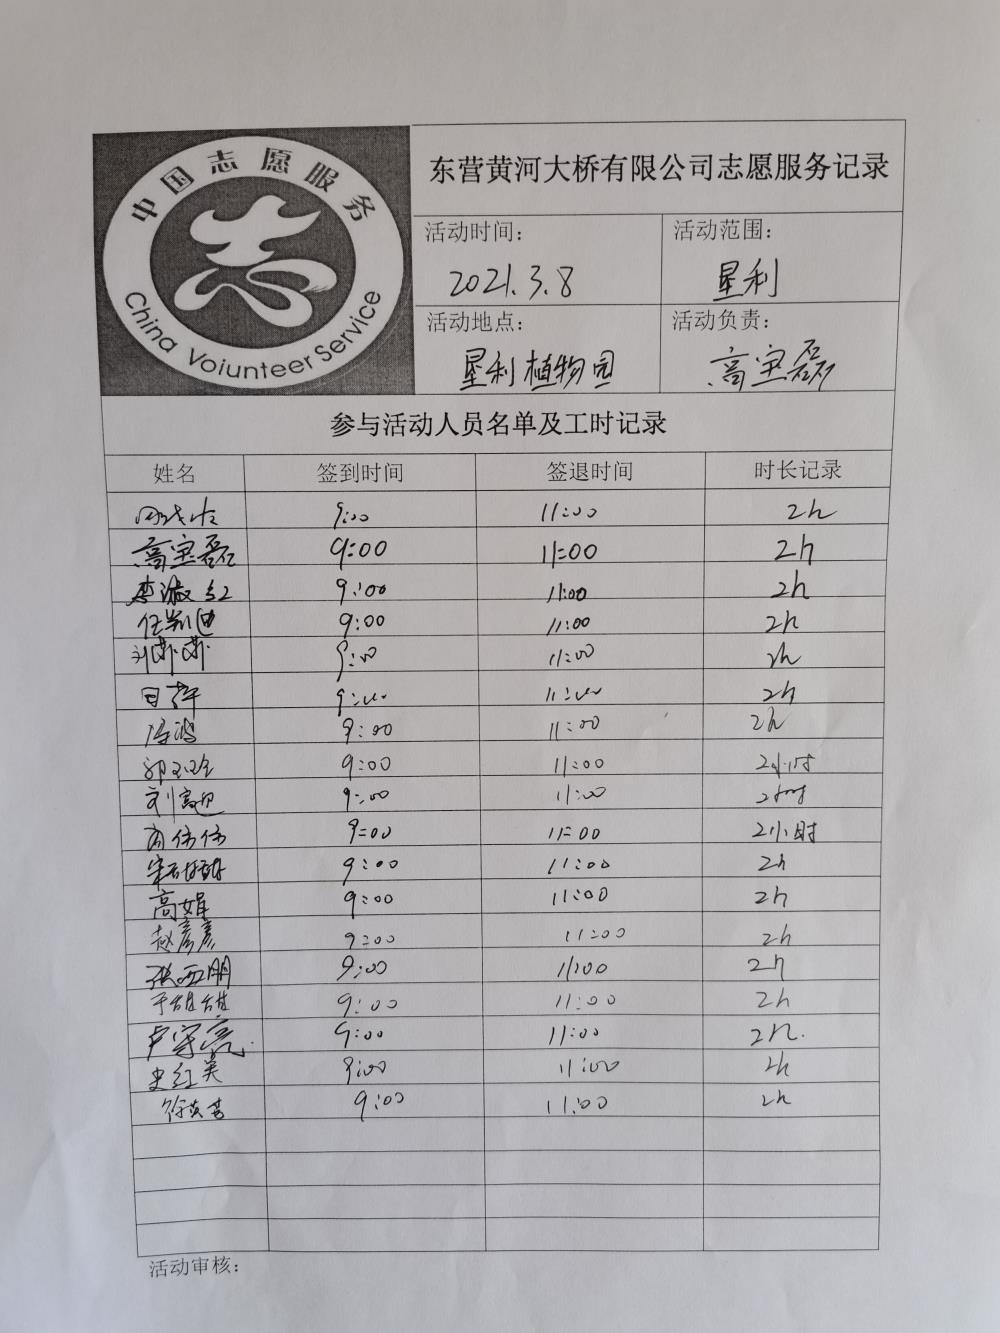 中国志愿服务
China Voiunteer Service
东营黄河大桥有限公司志愿服务记录
活动时间： 活动范围：
2021.3.8 垦利
活动地点： 活动负责：
垦利植物园 高宝磊
参与活动人员名单及工时记录
姓名 签到时间 签退时间 时长记录
9:00 11:00 2h
高宝磊 9:00 11:00 2h
李淑红 9:00 11:00 2h
任凯迪 9:00 11:00 2h
刘莎莎 9:00 11:00 2h
9:00 11:00 2h
9:00 11:00 2h
9:00 11:00 2小时
刘 9:00 11:00 2小时
伟伟 9:00 11:00 2小时
9:00 11:00 2h
高娟 9:00 11:00 2h
赵彦彦 9:00 11:00 2h
张亚朋 9:00 11:00 2h
于甜甜 9:00 11:00 2h
卢守亮 9:00 11:00 2h.
史红英 9:00 11:00 2h
9:00 11:00 2h
活动审核：